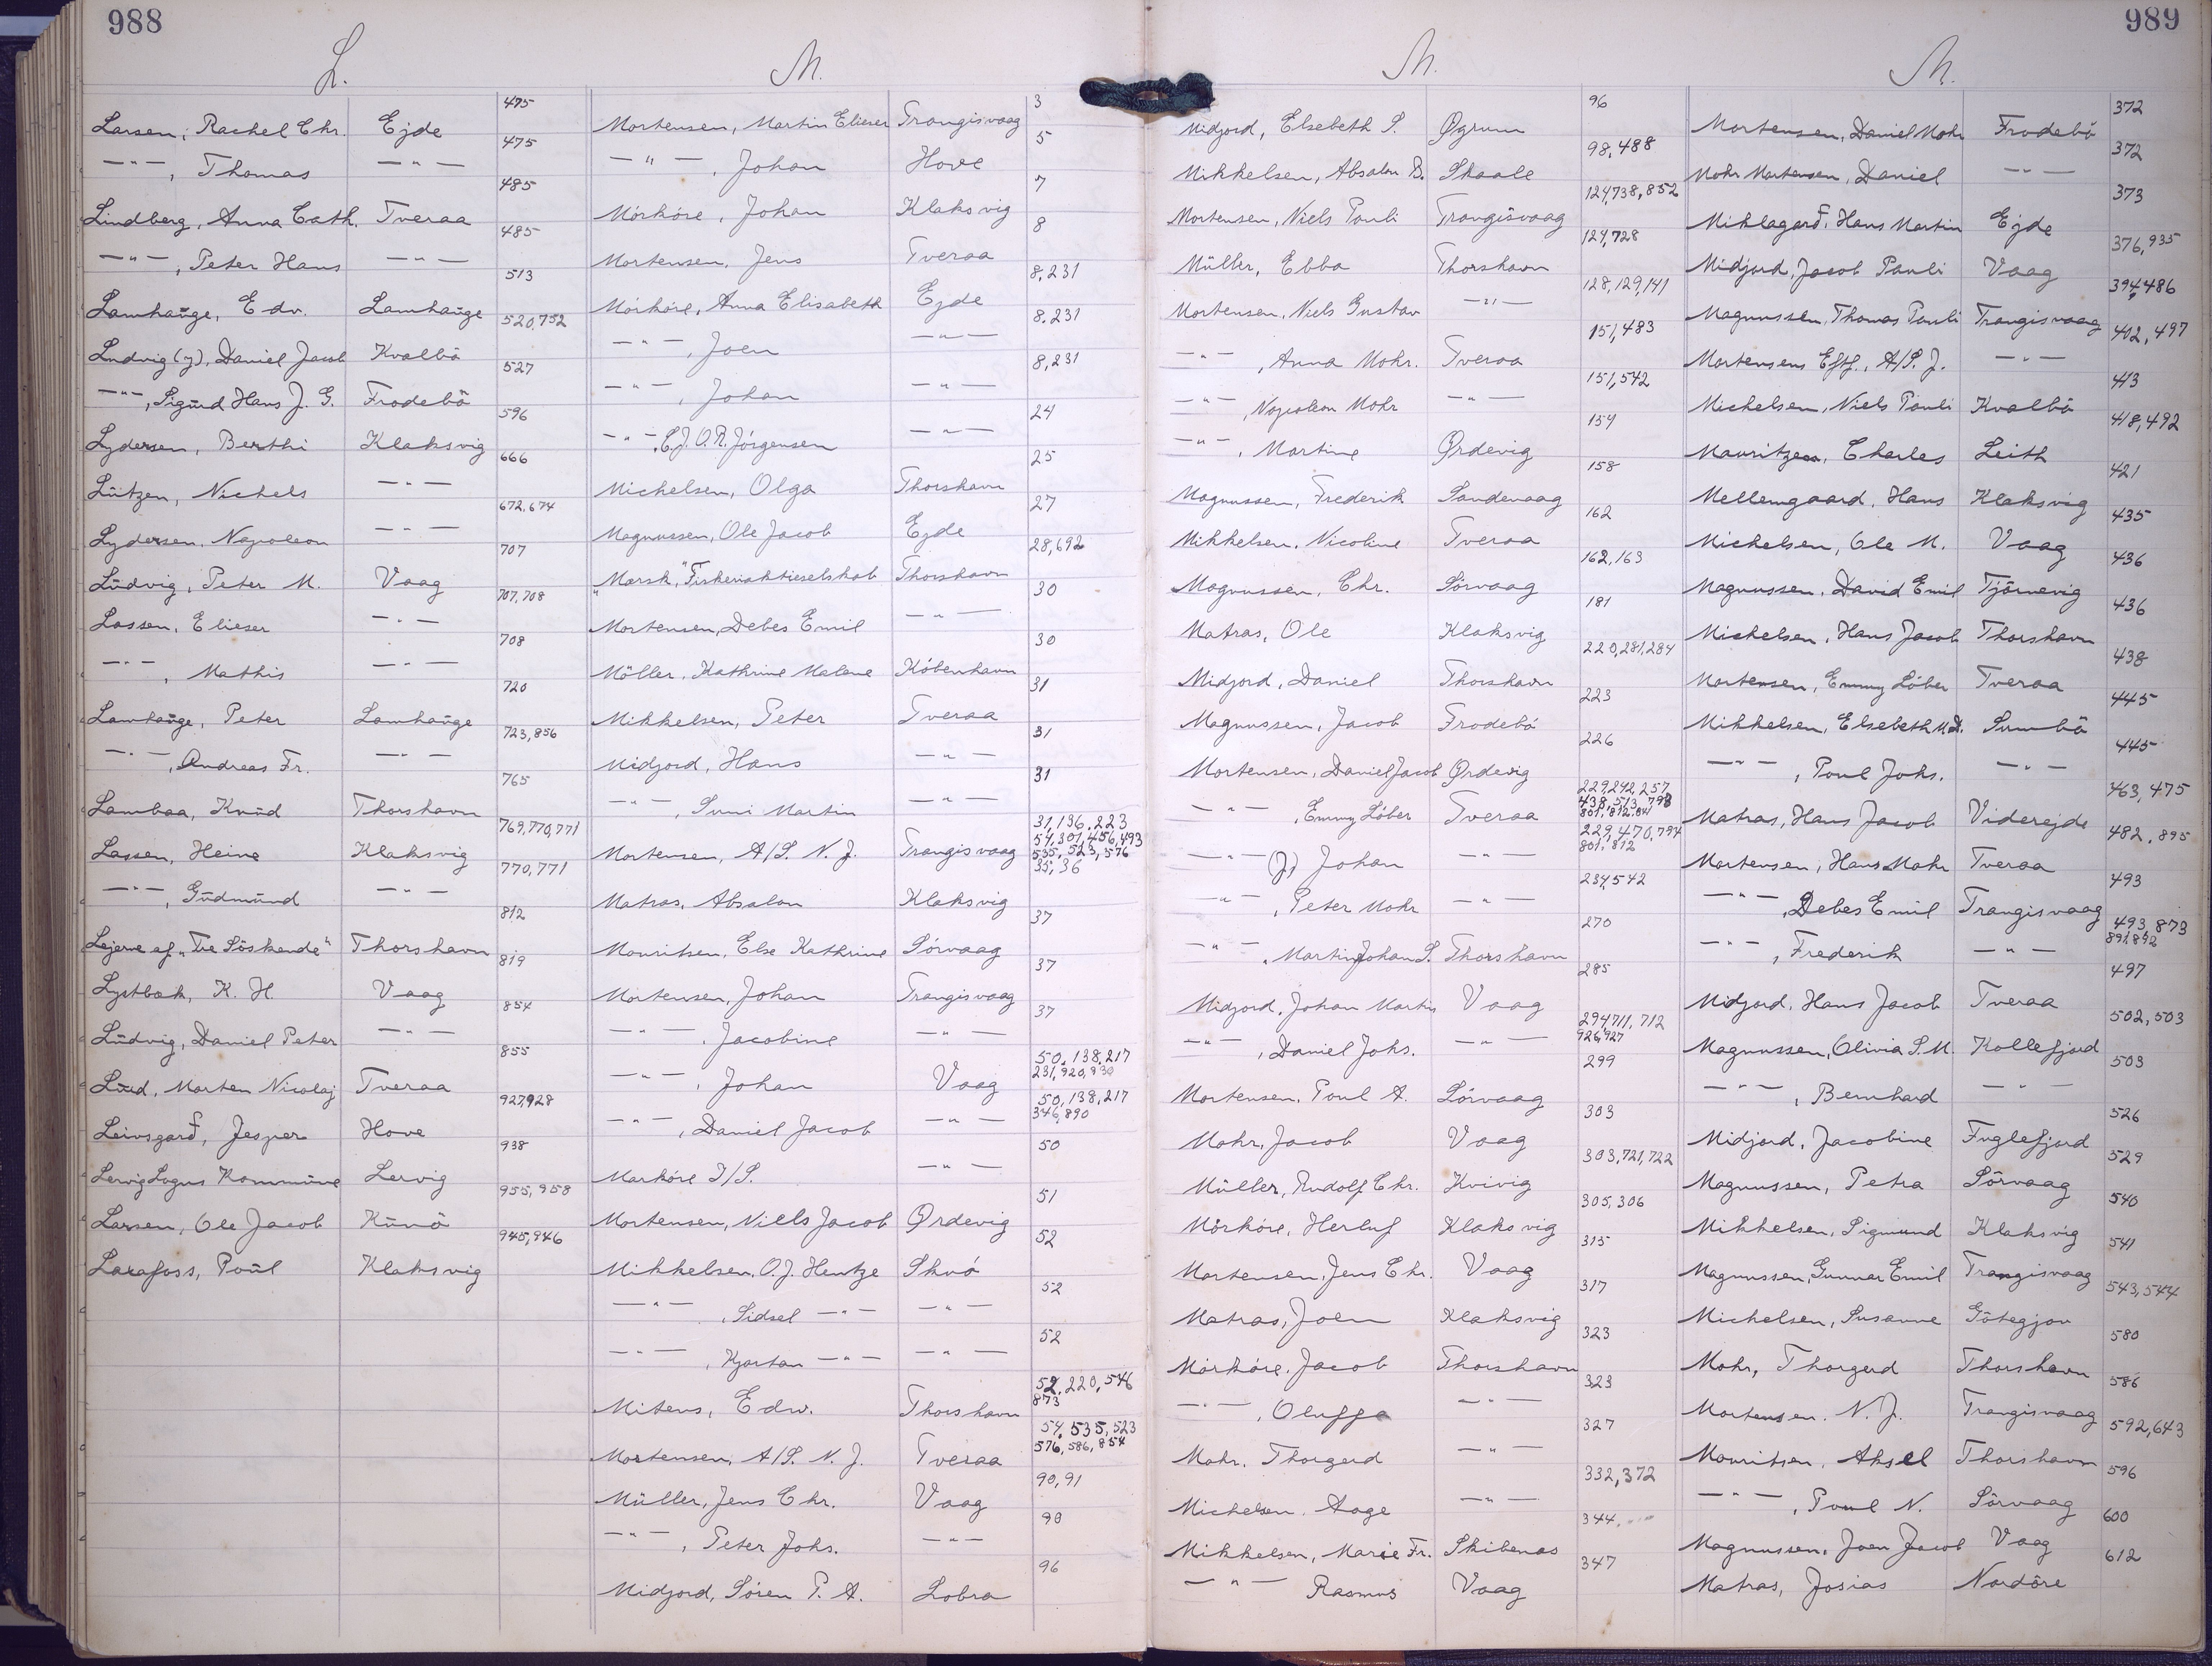 988
L.
475
Larsen, Rachel Chr. Ejde
475
—"—, Thomas —"—
485
Lindberg, Anna Cath. Tveraa
485
—"—, Peter Hans —"—
513
Lamhauge, Edv. Lamhauge
520,752
Ludvig (y), Daniel Jacob Kvalbö
527
—"—, Sigurd Hans J. G. Frodebö
596
Lydersen, Berthi Klaksvig
666
Lützen, Nichels —"—
672,674
Lydersen, Napoleon —"—
707
Ludvig, Peter M. Vaag
707,708
Lassen, Elieser —"—
708
—"—, Mathis —"—
720
Lamhauge, Peter Lamhauge
723,856
—"—, Andreas Fr. —"—
765
Lambaa, Knud Thorshavn
769,770,771
Lassen, Heine Klaksvig
770,771
—"—, Gudmund —"—
812
Lejerne af „Tre Söskende" Thorshavn
819
Lystbæk, K. H. Vaag
854
Ludvig, Daniel Peter —"—
855
Lund, Morten Nicolaj Tveraa
927,928
Leivsgarð, Jesper Hove
938
Lervig Sogns Kommune Lervig
955,958
Larsen, Ole Jacob Kunö
945,946
Laxafoss, Poul Klaksvig
M.
3
Mortensen, Martin Elieser Trangisvaag
5
—"—, Johan Hove
7
Mörköre, Johan Klaksvig
8
Mortensen, Jens Tveraa
8,231
Mörköre, Anna Elisabeth Ejde
8.231
—"—, Joen —"—
8,231
—"—, Johan —"—
24
—"—, E.J.O.R. Jörgensen —"—
25
Michelsen, Olga Thorshavn
27
Magnussen, Ole Jacob Ejde
28,692
„Marsk," Fiskeriaktieselskab Thorshavn
30
Mortensen, Debes Emil —"—
30
Möller, Kathrine Malene Köbenhavn
31
Mikkelsen, Peter Tveraa
31
Midjord, Hans —"—
31
—"—, Suni Martin —"—
31,136,223
54,301,456,493
535,523,576
Mortensen, A/S. N. J. Trangisvaag
35,36
Matras, Absalon Klaksvig
37
Mouritsen, Else Kathrine Sörvaag
37
Mortensen, Johan Trangisvaag
37
—"—, Jacobine —"—
50,138,217
231,920,930
—"—, Johan Vaag
50,138,217
346,890
—"—, Daniel Jacob —"—
50
Marköre I/S. —"—
51
Mortensen, Niels Jacob Ørdevig
52
Mikkelsen, O.J. Hentze Skuö
52
—"—, Sidsel —"— —"—
52
—"—, Kjartan —"— —"—
52,220,546
873
Mitens, Edw. Thorshavn
54,535,523
576,586,854
Mortensen, A/S. N. J. Tveraa
90,91
Müller, Jens Chr. Vaag
90
—"—, Peter Johs. —"—
96
Midjord, Sören P. A. Lobra
989
M.
96
Midjord, Elsebeth S. Øgrum
98,488
Mikkelsen, Absalon B. Skaale
124,738,852
Mortensen, Niels Pauli Trangisvaag
127,728
Müller, Ebba Thorshavn
128,129,141
Mortensen, Niels Gustav —"—
151,483
—"—, Anna Mohr. Tveraa
151,542
—"—, Napoleon Mohr —"—
154
—"—, Martine Ørdevig
158
Magnussen, Frederik Sandevaag
162
Mikkelsen, Nicoline Tveraa
162,163
Magnussen, Chr. Sörvaag
181
Matras, Ole Klaksvig
220,281,284
Midjord, Daniel Thorshavn
223
Magnussen, Jacob Frodebö
226
Mortensen, Daniel Jacob Ørdevig
229,242,257
438,513,798
801,812,841
—"—, Emmy Löber Tveraa
229,470,794
801,812
—"— (J) Johan —"—
234,542
—"—, Peter Mohr —"—
270
—"—, Martin Johan S. Thorshavn
285
Midjord, Johan Martin Vaag
294,711,712
926,927
—"—, Daniel Johs. —"—
299
Mortensen, Poul A. Sörvaag
303
Mohr, Jacob Vaag
303,721,722
Müller, Rudolf Chr. Kvivig
305,306
Mörköre, Herluf Klaksvig
315
Mortensen, Jens Chr. Vaag
317
Matras, Joen Klaksvig
323
Mörköre, Jacob Thorshavn
323
—"—, Oluffa —"—
327
Mohr, Thorgerd —"—
332,372
Michelsen, Aage —"—
344
Mikkelsen, Marie Fr. Skibenæs
347
—"— Rasmus Vaag
M.
372
Mortensen, Daniel Mohr Frodebö
372
Mohr Mortensen, Daniel —"—
373
Miklagarð, Hans Martin Ejde
376,935
Midjord, Jacob Pauli Vaag
394,486
Magnussen, Thomas Pauli Trangisvaag
402,497
Mortensens Eftf., A/S. J. —"—
413
Michelsen, Niels Pauli Kvalbö
418,492
Mauritzen, Charles Leith
421
Mellemgaard, Hans Klaksvig
435
Michelsen, Ole M. Vaag
436
Magnussen, David Emil Tjörnevig
436
Michelsen, Hans Jacob Thorshavn
438
Mortensen, Emmy Löber Tveraa
445
Mikkelsen, Elsebeth M.D. Sumbö
445
—"—, Poul Johs. —"—
463,475
Matras, Hans Jacob Viderejde
482,895
Mortensen, Hans Mohr Tveraa
493
—"—, Debes Emil Trangisvaag
493,873
891,892
—"—, Frederik —"—
497
Midjord, Hans Jacob Tveraa
502,503
Magnussen, Olivia S.M. Kollefjord
503
—"—, Bernhard —"—
526
Midjord, Jacobine Fuglefjord
529
Magnussen, Petra Sörvaag
540
Mikkelsen, Sigmund Klaksvig
541
Magnussen, Gunnar Emil Trangisvaag
543,544
Michelsen, Susanne Götegjov
580
Mohr, Thorgerd Thorshavn
586
Mortensen. N. J. Trangisvaag
592,643
Mouritsen, Aksel Thorshavn
596
—"—, Poul N. Sörvaag
600
Magnussen, Joen Jacob Vaag
612
Matras, Josias Nordöre